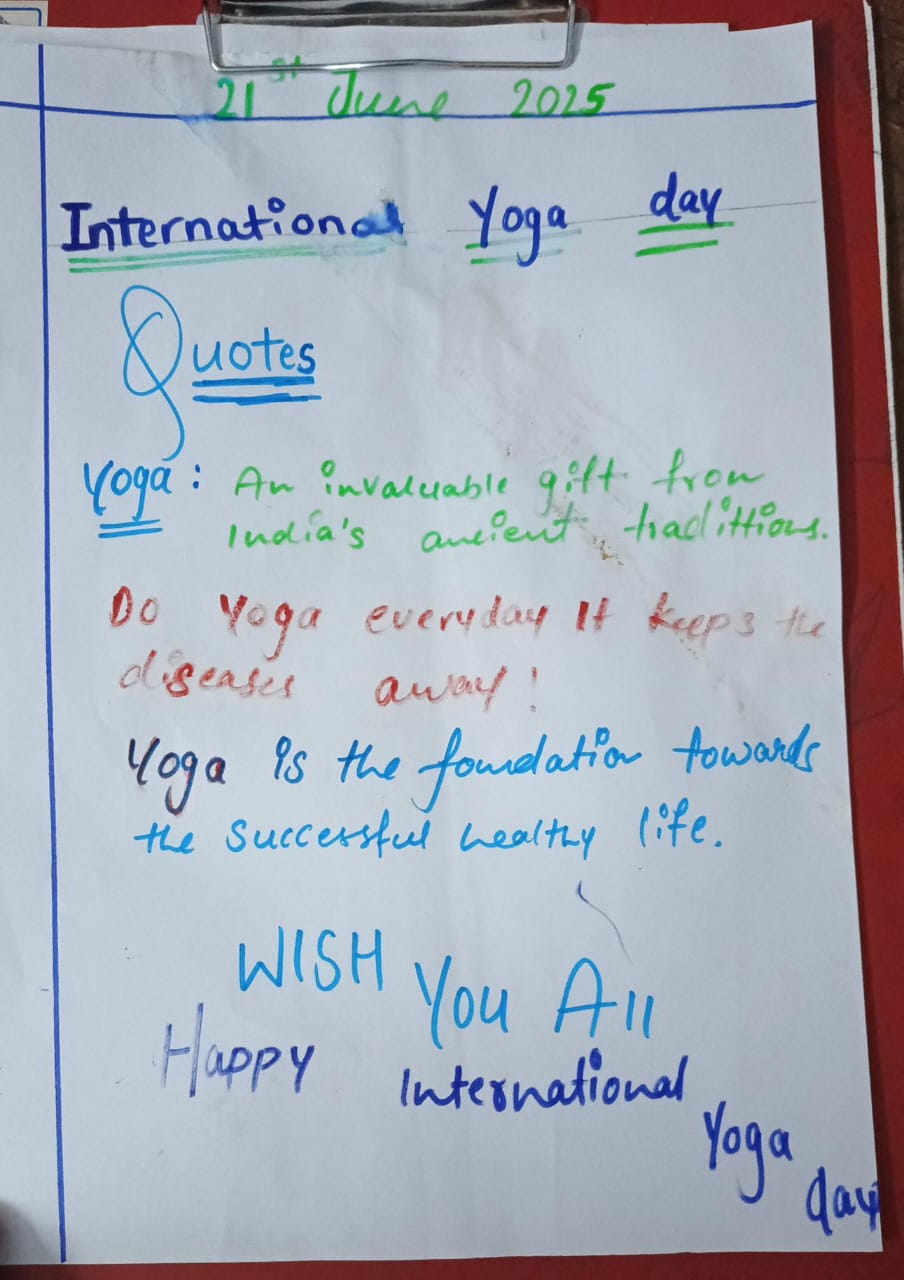 21st June 2025
International Yoga day
Quotes
Yoga: An invaluable gift from
India's ancient tradittions.
Do Yoga everyday It keeps the
diseases away!
Yoga is the foundation towards
the successful healthy life.
WISH You All
Happy International
Yoga
day